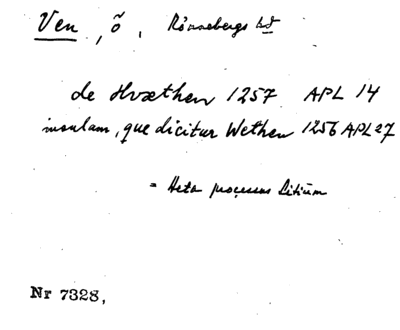 Ven, ö, Rönnebergs hd
de Hvæthen 1257 APL 14
insulam, que dicitur Wethen 1256 APL 27
= Acta processus Litium
Nr 7328,